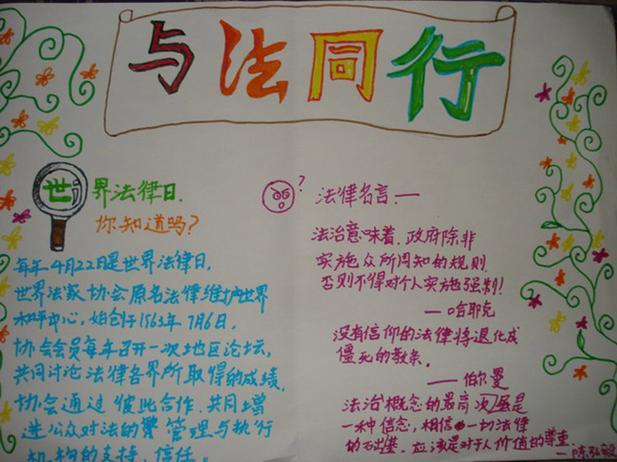 与法同行
世界法律日.
你知道吗?
每年4月22日是世界法律日,
世界法家协会原名法律维护世界
和平中心,始创于1963年7月6日,
协会会员每年召开一次地区论坛,
共同讨论法律各界所取得的成绩.
协会通过彼此合作.共同增
进公众对法的 管理与执行
机构的支持.信任.
?
法律名言:—
法治意味着,政府除非
实施众所周知的规则.
否则不得对个人实施强制!
—哈耶克
没有信仰的法律将退化成
僵死的教条.
——伯尔曼
法治概念的最高 是
一种信念,相信一切法律
的 基.应该是对于人价值的尊重.
—陈弘毅